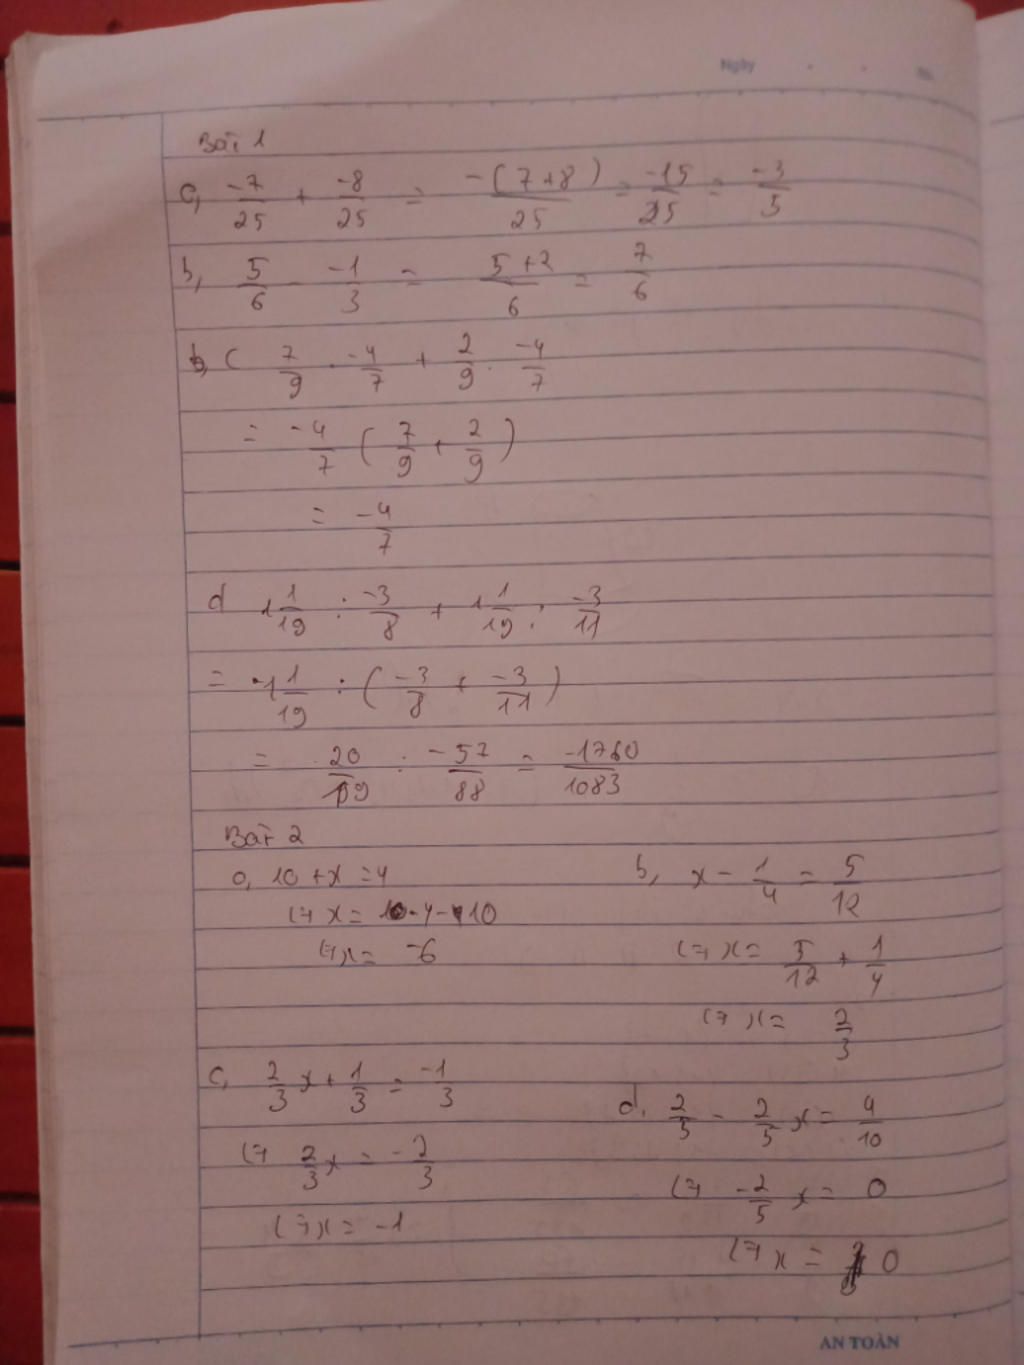 Ngày
Bài 1
a, -7/25 + -8/25 = -(7+8)/25 = -15/25 = -3/5
b, 5/6 - -1/3 = 5+2/6 = 7/6
c 7/9 . -4/7 + 2/9 . -4/7
= -4/7 ( 7/9 + 2/9 )
= -4/7
d 1 1/19 : -3/8 + 1 1/19 : -3/11
= 1 1/19 : ( -3/8 + -3/11 )
= 20/19 : -57/88 = -1760/1083
Bài 2
a, 10 + x = 4
(=) x = 4 - 10
(=) x = -6
b, x - 1/4 = 5/12
(=) x = 5/12 + 1/4
(=) x = 2/3
c, 2/3 x + 1/3 = -1/3
(=) 2/3 x = -2/3
(=) x = -1
d, 2/5 - 2/5 x = 4/10
(=) -2/5 x = 0
(=) x = 0
AN TOÀN